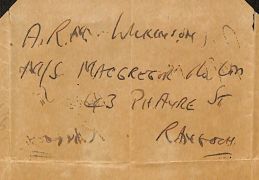 A. R. Mc. WILKINSON,
M/S MACGREGOR & Co Ltd
43 PHAYRE St
RANGOON.